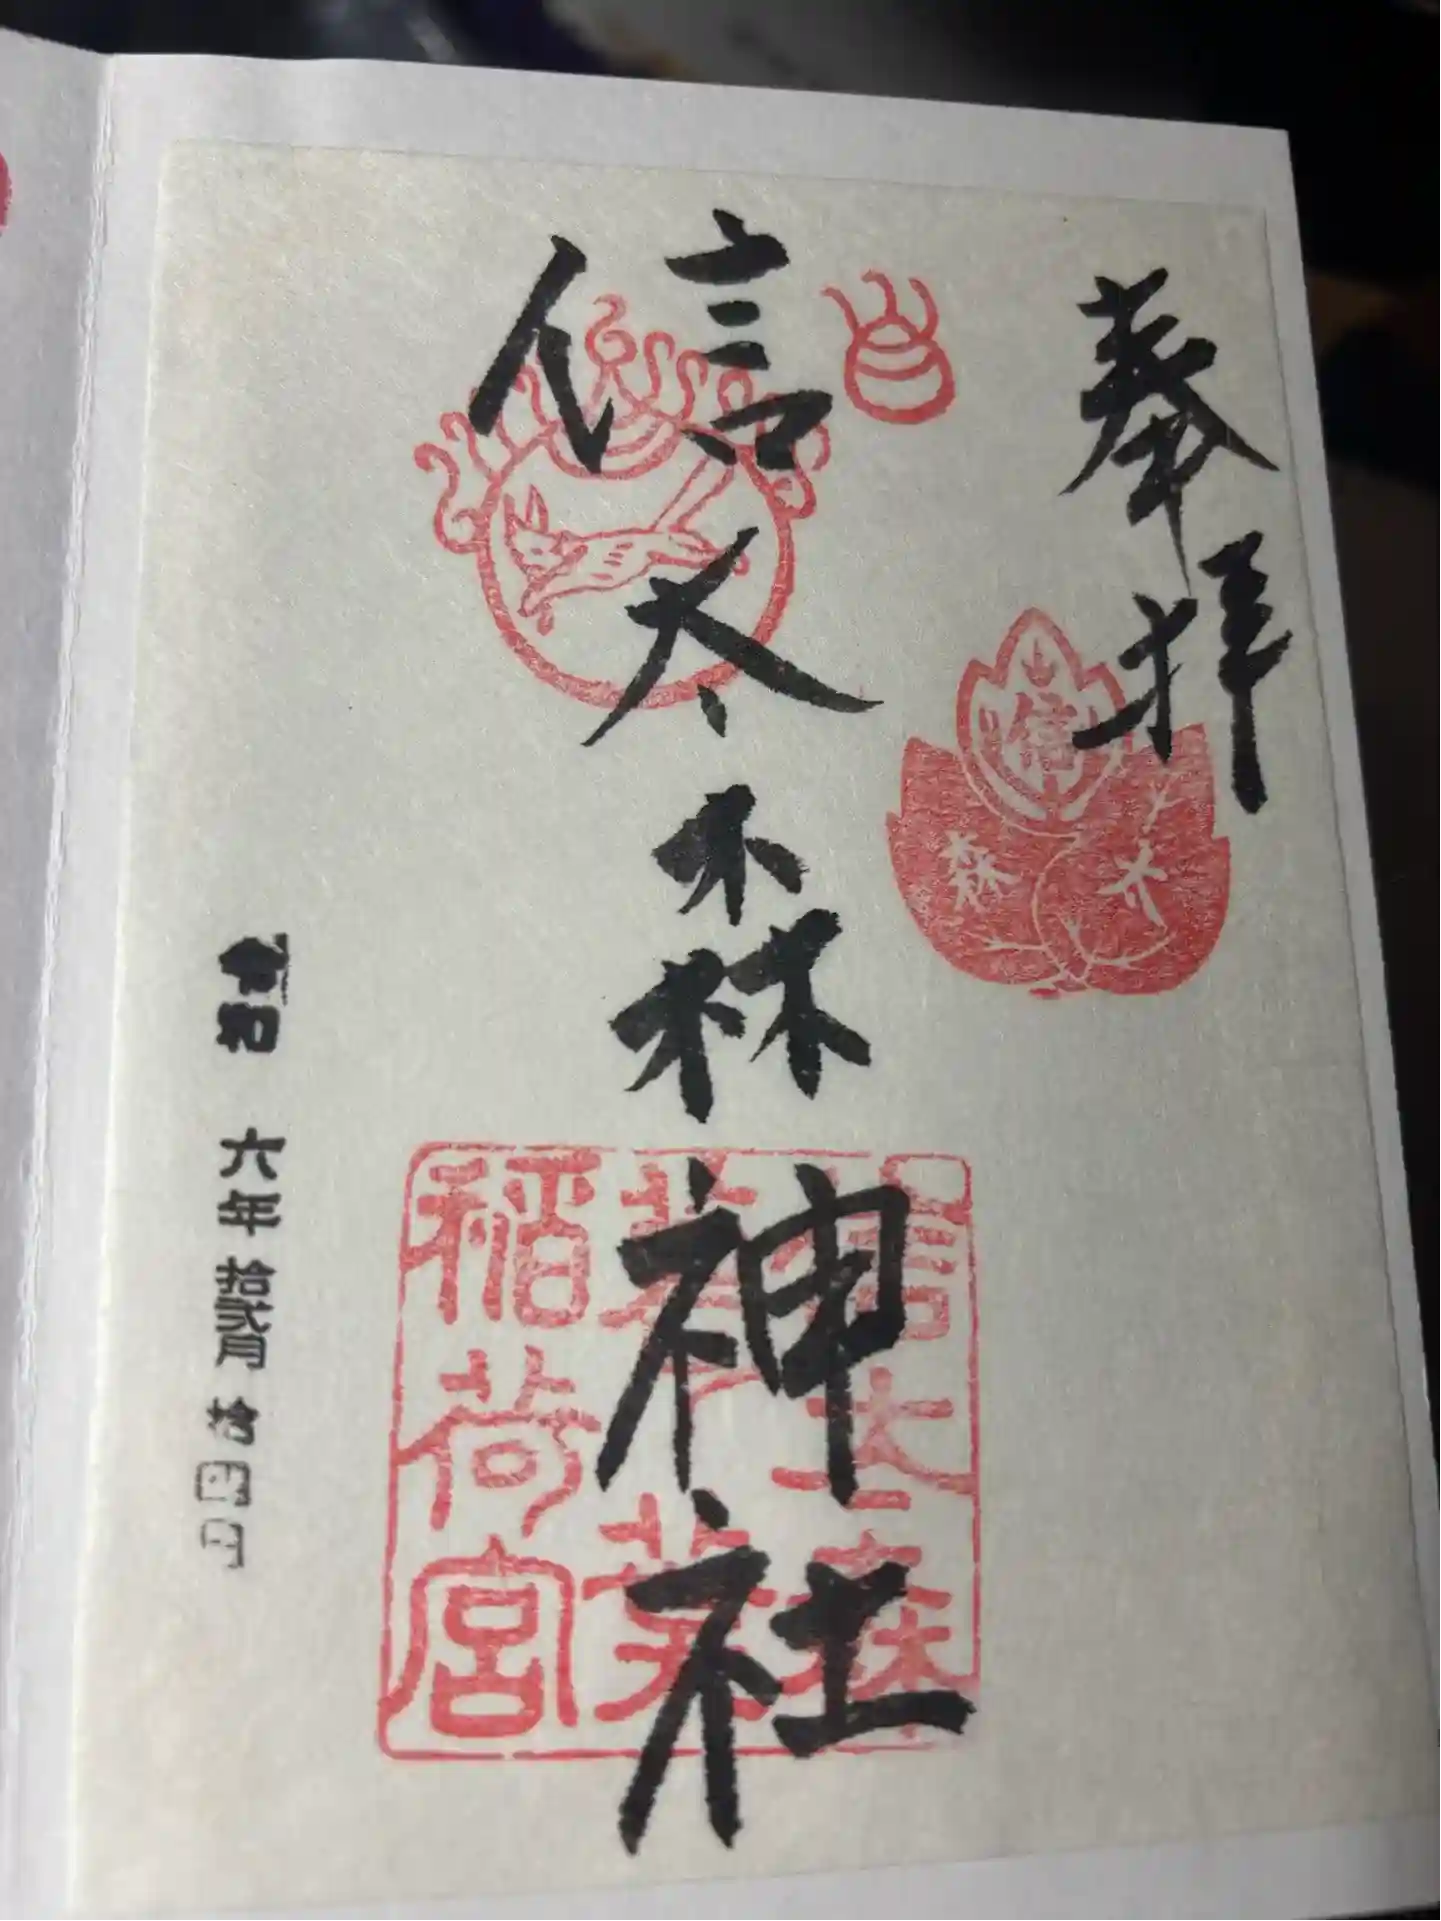 奉拝
信太森神社
信太森
葛葉
稲荷宮
令和六年拾弐月拾四日